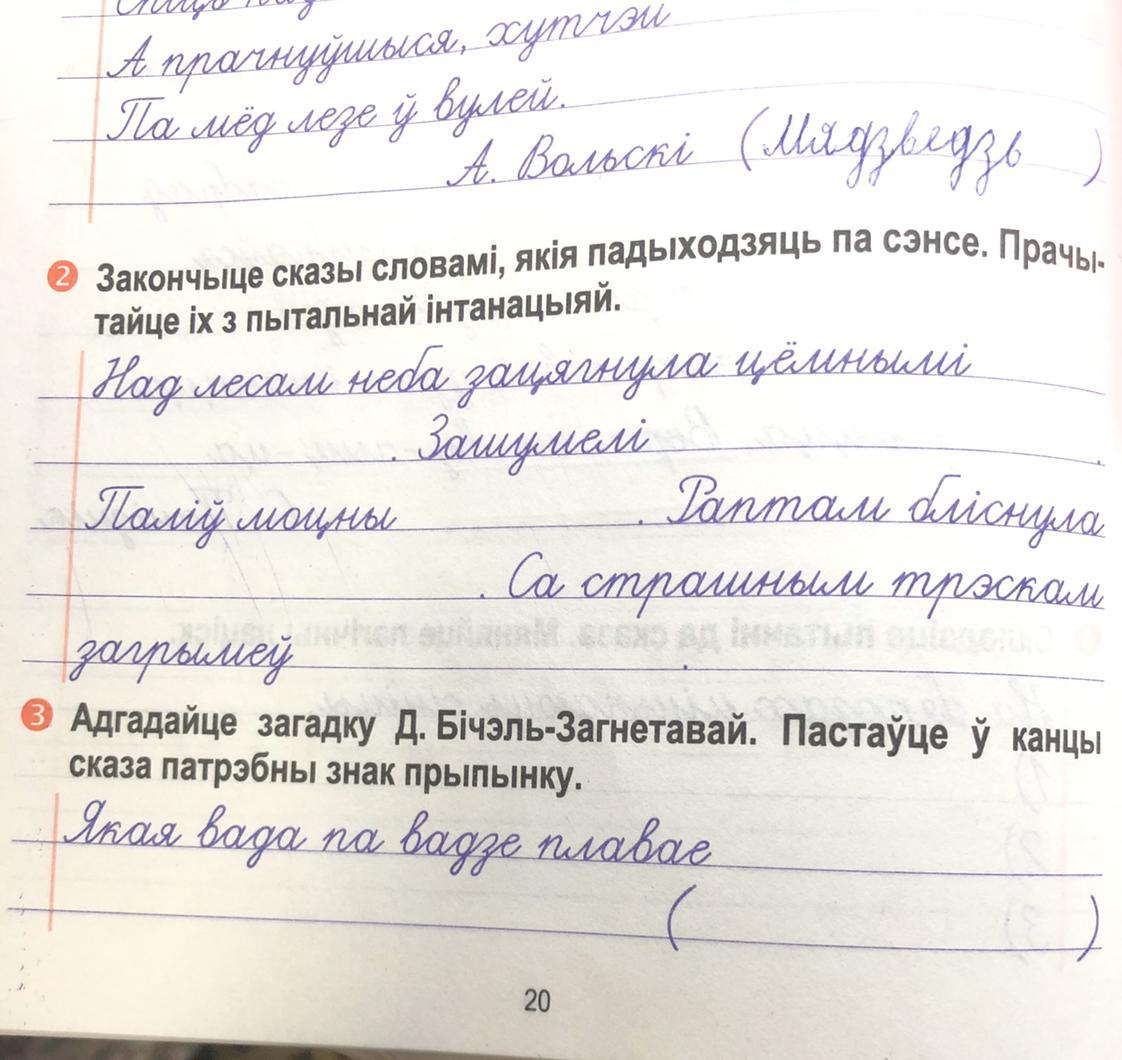 А прачнуўшыся, хутчэй
Па мёд лезе ў вулей.
А. Вольскі (Мядзведзь )
2 Закончыце сказы словамі, якія падыходзяць па сэнсе. Прачы-
тайце іх з пытальнай інтанацыяй.
Над лесам неба зацягнула цёмнымі
. Зашумелі .
Паліў моцны . Раптам бліснула
. Са страшным трэскам
загрымеў .
3 Адгадайце загадку Д. Бічэль-Загнетавай. Пастаўце ў канцы
сказа патрэбны знак прыпынку.
Якая вада па вадзе плавае
( )
20